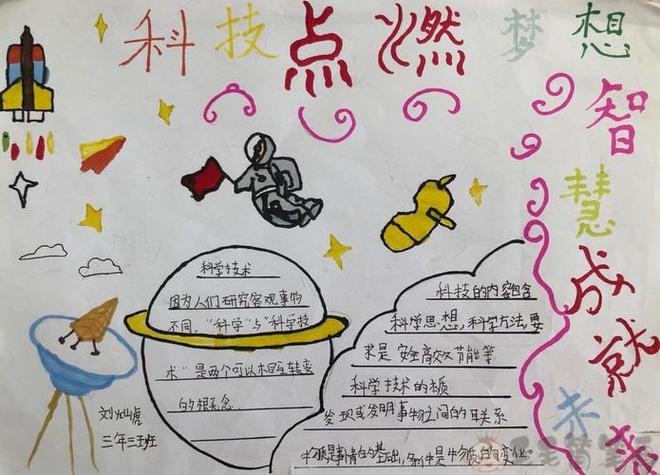 科技点燃梦想
智慧成就未来
科学技术
因为人们研究客观事物
不同，“科学”与“科学技
术”是两个可以相互转变
的概念
科技的内容包含
科学思想，科学方法，要
求是安全高效节能等
科学技术的本质
发现或发明事物之间的联系
物质是事情的基础，
是物质的变化。
三年三班